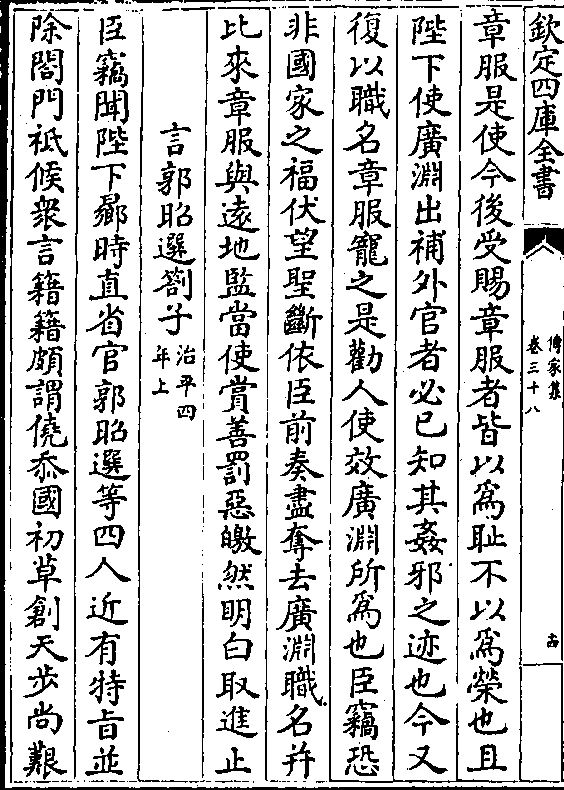 欽定四庫全書
傳家集
卷三十八
十四
章服是使今後受賜章服者皆以為耻不以為榮也且
陛下使廣淵出補外官者必已知其姦邪之迹也今又
復以職名章服寵之是勸人使效廣淵所為也臣竊恐
非國家之福伏望聖斷依臣前奏盡奪去廣淵職名并
比來章服與逺地監當使賞善罰惡皦然明白取進止
言郭昭選劄子
治平四
年上
臣竊聞陛下曏時直省官郭昭選等四人近有特㫖並
除閤門祗候衆言籍籍頗謂僥忝國初草創天步尚艱